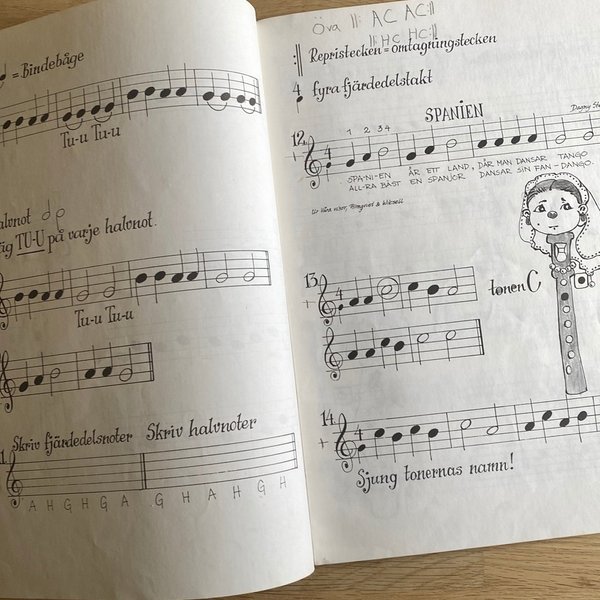 = Bindebåge
Tu-u Tu-u
halvnot
TU-U på varje halvnot.
Tu-u Tu-u
Skriv fjärdedelsnoter Skriv halvnoter
A H G H G A G H A H G H
Öva ||: AC AC:||
||: HC HC:||
Repristecken = omtagningstecken
4 fyra fjärdedelstakt
SPANIEN
12.
1 2 3 4
4
SPA-NI-EN ÄR ETT LAND, DÄR MAN DANSAR TANGO
ALL-RA BÄST EN SPANJOR DANSAR SIN FAN-DANGO.
13.
4
tonen C
14.
4
Sjung tonernas namn!